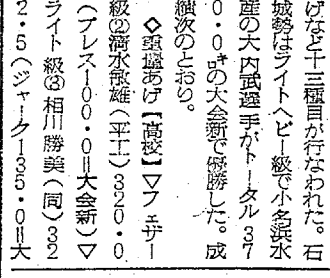 げなど十三種目が行なわれた。石
城勢はライトヘビー級で小名浜水
産の大内武選手がトータル37
0・0㌔の大会新で優勝した。成
績次のとおり。
◇重量あげ【高校】▽フェザー
級②清水敏雄(平工)320・0
(プレス100・0=大会新)▽
ライト級③相川勝美(同)32
2・5(ジャーク135・0=大